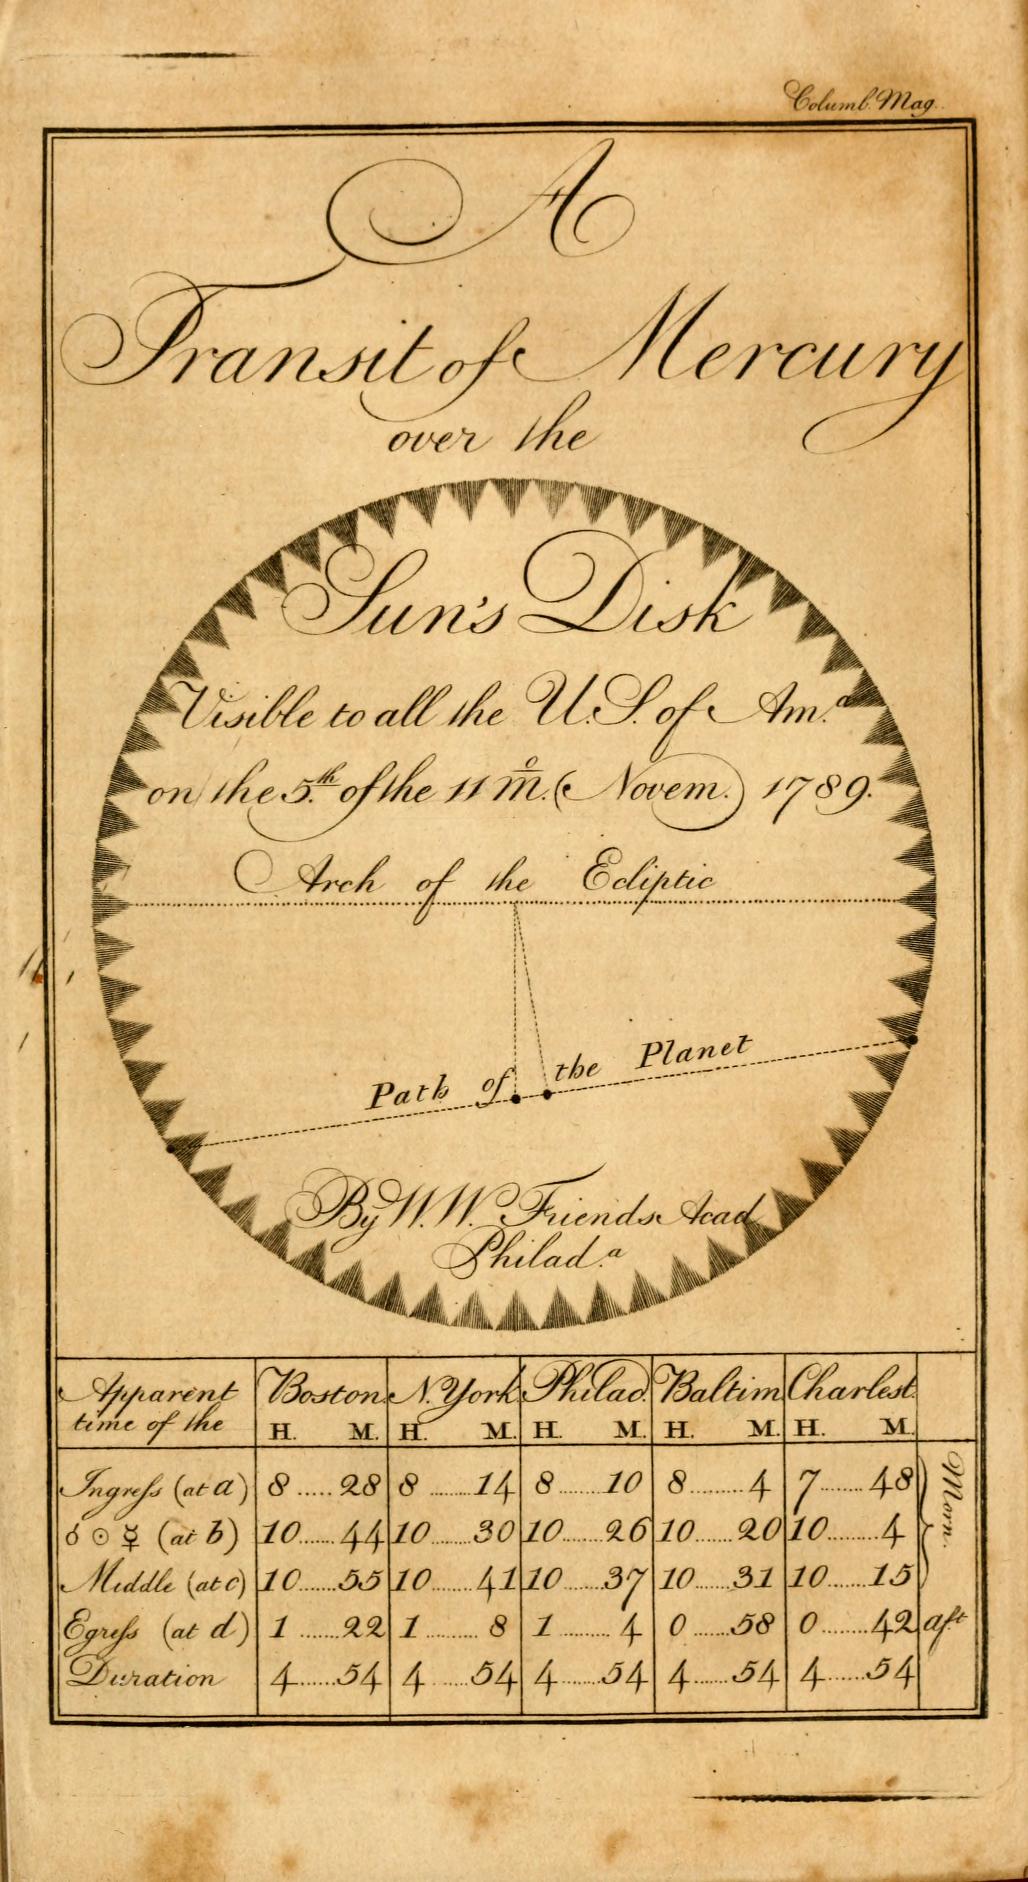 Columb. Mag.
A
Transit of Mercury
over the
Sun's Disk
Visible to all the U.S. of Am.a
on the 5.th of the 11 m̊. (Novem.) 1789.
Arch of the Ecliptic
Path of the Planet
By W.W. Friends Acad
Philad.a
Apparent time of the Boston N. York Philad. Baltim Charlest.
H. M. H. M. H. M. H. M. H. M.
Ingress (at a) 8.....28 8.....14 8.....10 8.....4 7.....48 Morn.
☌ ☉ ☿ (at b) 10.....44 10.....30 10.....26 10.....20 10.....4
Middle (at c) 10.....55 10.....41 10.....37 10.....31 10.....15
Egress (at d) 1.....22 1.....8 1.....4 0.....58 0.....42 aft
Duration 4.....54 4.....54 4.....54 4.....54 4.....54